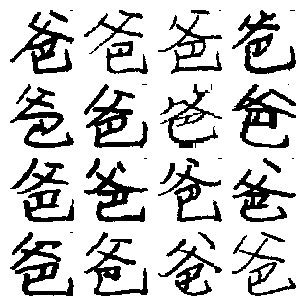 爸爸爸爸
爸爸爸爸
爸爸爸爸
爸爸爸爸